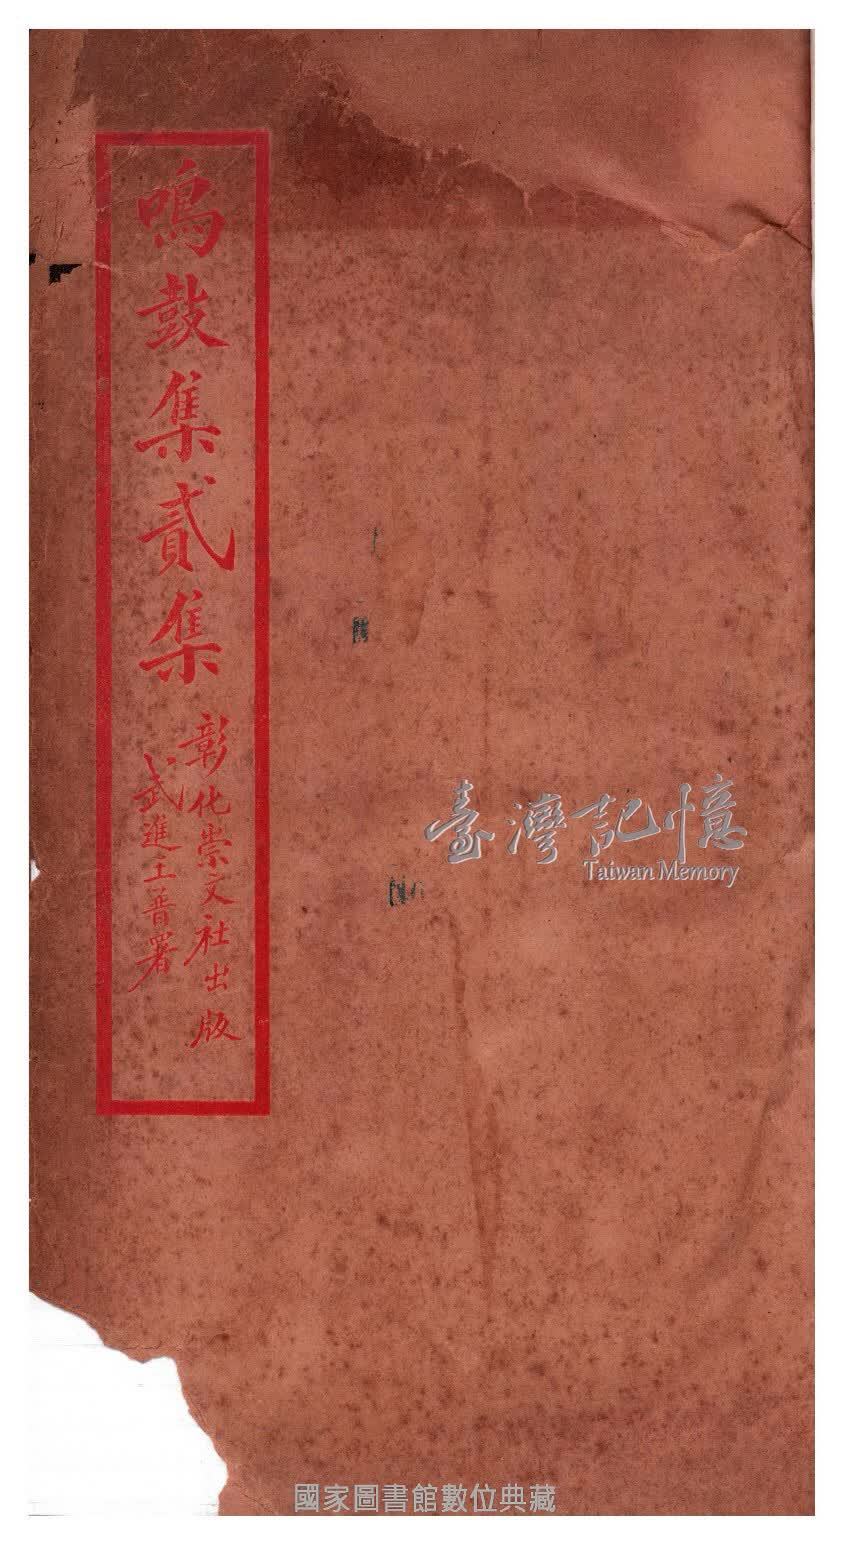 鳴鼓集貳集
彰化崇文社出版
武進王普署
臺灣記憶
Taiwan Memory
國家圖書館數位典藏